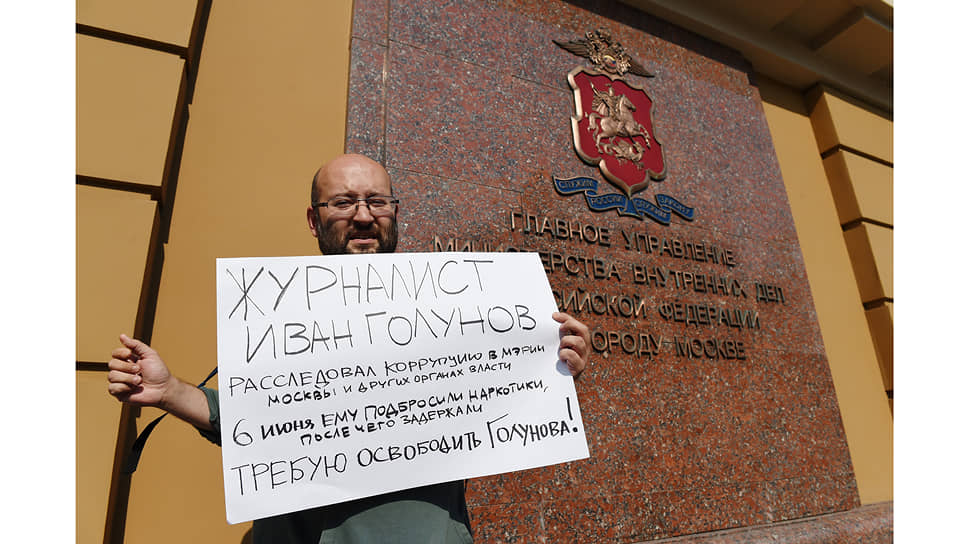 СЛУЖИМ РОССИИ СЛУЖИМ ЗАКОНУ
ГЛАВНОЕ УПРАВЛЕНИЕ
МИН ЕРСТВА ВНУТРЕННИХ ДЕЛ
СИЙСКОЙ ФЕДЕРАЦИИ
ОРОДУ МОСКВЕ
ЖУРНАЛИСТ
ИВАН ГОЛУНОВ
РАССЛЕДОВАЛ КОРРУПЦИЮ В МЭРИИ
МОСКВЫ И ДРУГИХ ОРГАНАХ ВЛАСТИ
6 ИЮНЯ ЕМУ ПОДБРОСИЛИ НАРКОТИКИ,
ПОСЛЕ ЧЕГО ЗАДЕРЖАЛИ
ТРЕБУЮ ОСВОБОДИТЬ ГОЛУНОВА!